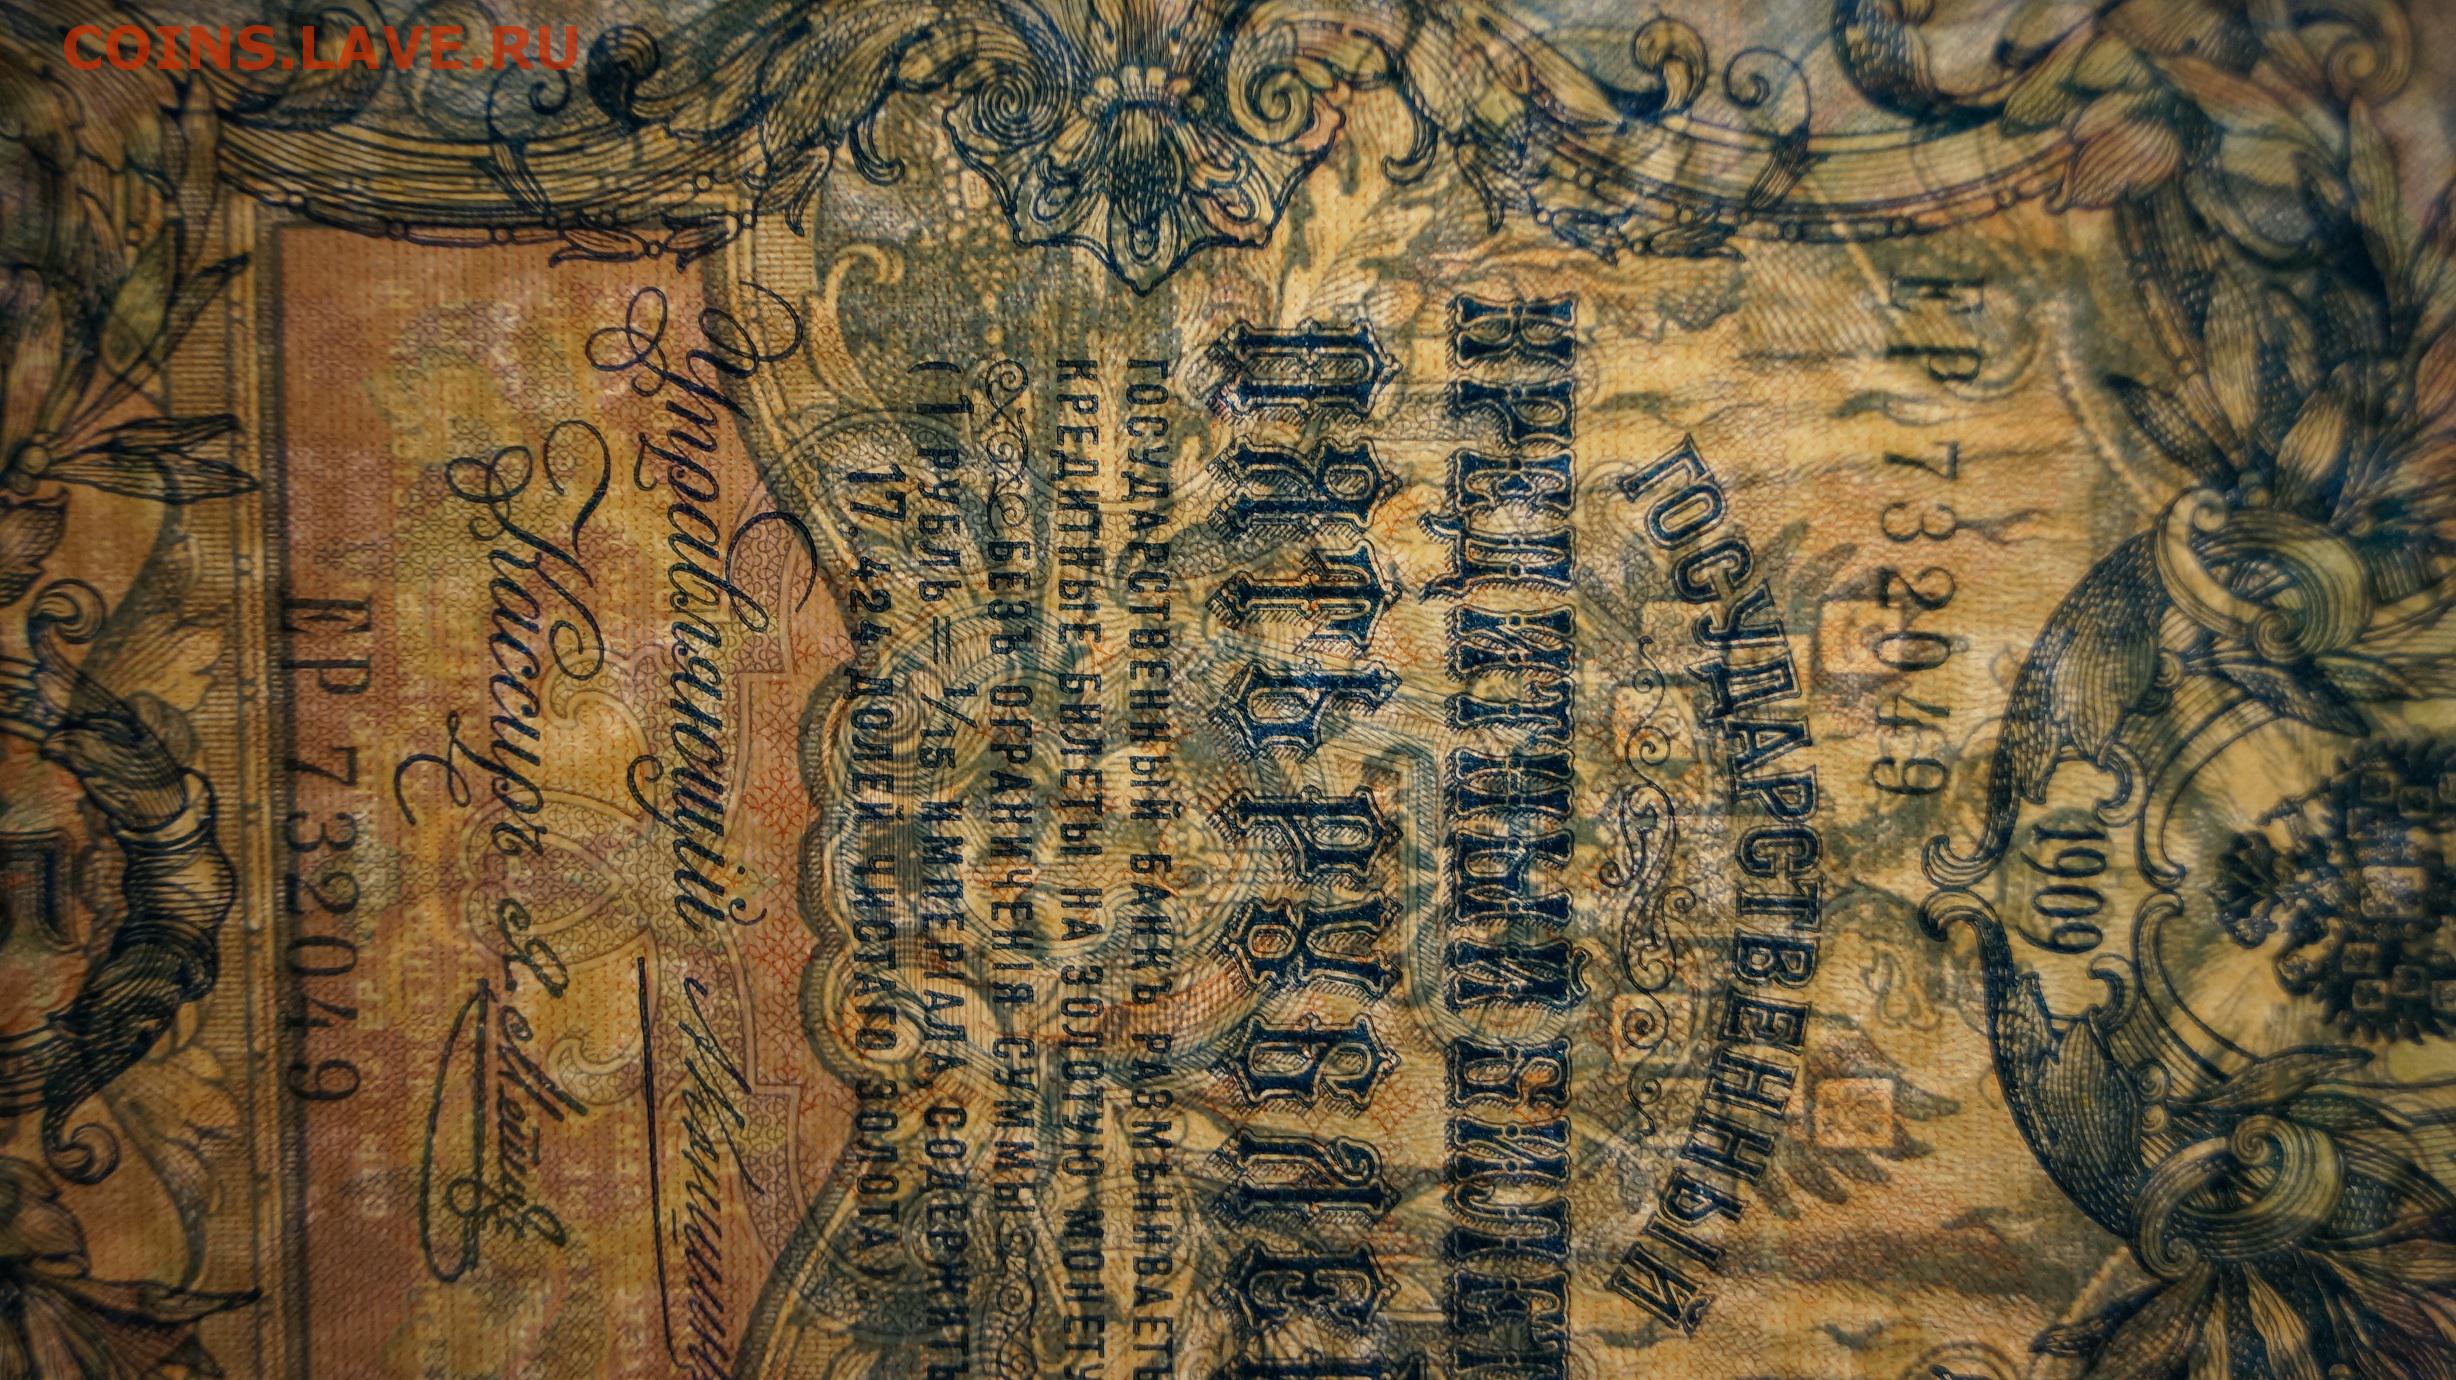 COINS.LAVE.RU
1909
ЕР 732049
ГОСУДАРСТВЕННЫЙ
КРЕДИТНЫЙ БИЛЕТ
ПЯТЬ РУБЛЕЙ
ГОСУДАРСТВЕННЫЙ БАНКЪ РАЗМѢНИВАЕТЪ
КРЕДИТНЫЕ БИЛЕТЫ НА ЗОЛОТУЮ МОНЕТУ
БЕЗЪ ОГРАНИЧЕНІЯ СУММЫ
(1 РУБЛЬ = 1/15 ИМПЕРІАЛА, СОДЕРЖИТЪ
17,424 ДОЛЕЙ ЧИСТАГО ЗОЛОТА).
Управляющій
Кассиръ
ЕР 732049